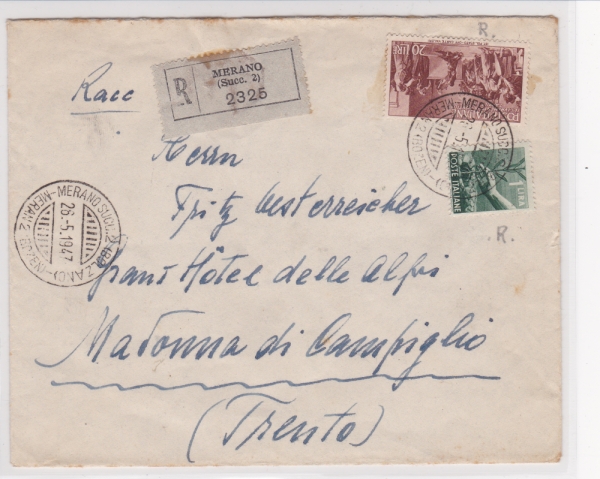 R.
20 LIRE
R
MERANO
(Succ. 2)
2325
Racc
MERANO SUCC. 2
POSTE ITALIANE
1 LIRA
R.
Herrn
Fritz Oesterreicher
Grand Hôtel delle Alpi
Madonna di Campiglio
(Trento)
MERANO SUCC. 2 (BOLZANO)
26.-5.1947